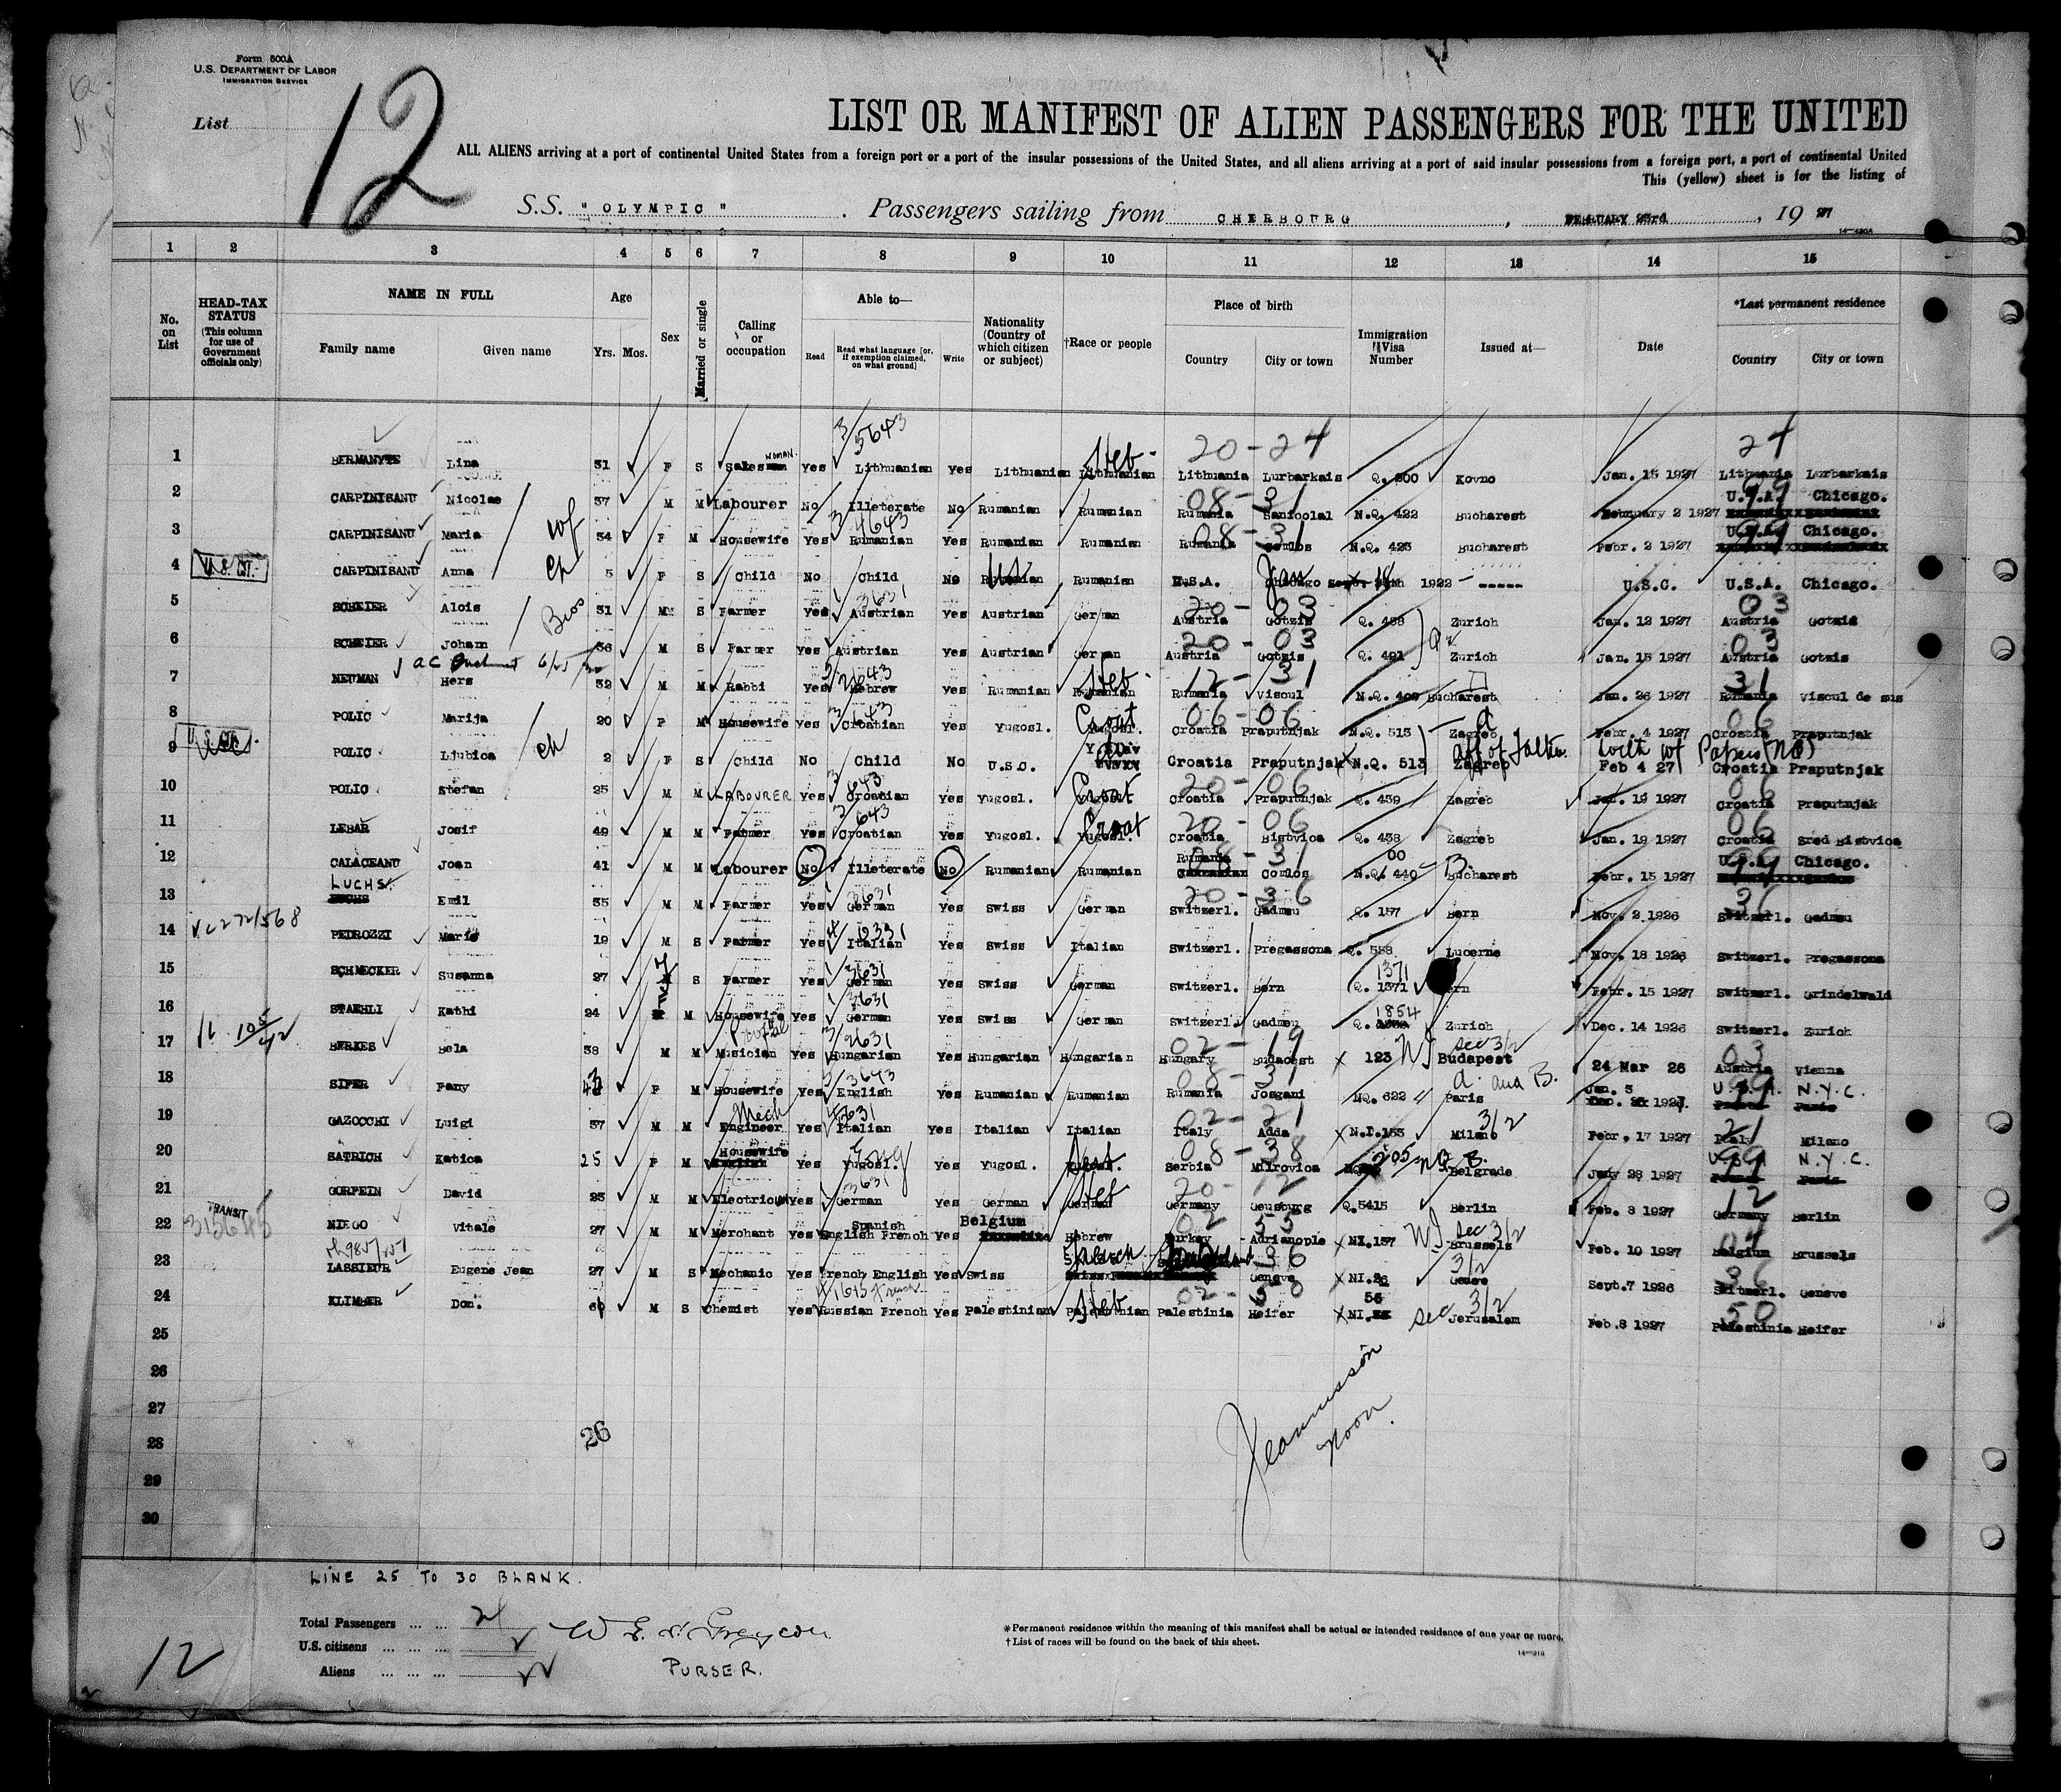 Form 500A
U.S. DEPARTMENT OF LABOR
IMMIGRATION SERVICE
List
12
LIST OR MANIFEST OF ALIEN PASSENGERS FOR THE UNITED
ALL ALIENS arriving at a port of continental United States from a foreign port or a port of the insular possessions of the United States, and all aliens arriving at a port of said insular possessions from a foreign port, a port of continental United
This (yellow) sheet is for the listing of
S.S. "OLYMPIC" . Passengers sailing from CHERBOURG , FEBRUARY 23rd , 19 27
1 2 3 4 5 6 7 8 9 10 11 12 13 14 15
No. on List
HEAD-TAX STATUS (This column for use of Government officials only)
NAME IN FULL Family name Given name
Age Yrs. Mos.
Sex
Married or single
Calling or occupation
Able to— Read Read what language [or, if exemption claimed, on what ground] Write
Nationality (Country of which citizen or subject)
†Race or people
Place of birth Country City or town
Immigration Visa Number
Issued at—
Date
*Last permanent residence Country City or town
3/5643 20-24 24
1 BERMANYTE Lina 31 F S Saleswoman Yes Lithuanian Yes Lithuanian Lithuanian Heb- Lithuania Lurbarkais Q. 200 Kovno Jan. 15 1927 Lithuania Lurbarkais
2 CARPINISANU Nicolae 37 M M Labourer No Illeterate No Rumanian Rumanian 08-31 Rumania Sanicolal N.Q. 422 Bucharest February 2 1927 U.S.A. Chicago.
3 CARPINISANU Maria wf 34 F M Housewife Yes Rumanian Yes Rumanian Rumanian 08-31 Rumania Comlos N.Q. 423 Bucharest Febr. 2 1927 U.S.A. Chicago.
4 U.S. CIT. CARPINISANU Anna ch 5 F S Child No Child No Rumanian US Rumanian U.S.A. Chicago Jan 18 1922 ----- U.S.C. U.S.A. Chicago.
5 SCHEIER Alois Bros 31 M S Farmer Yes Austrian Yes Austrian German 20-03 Austria Gotzis Q. 458 Zurich Jan. 12 1927 Austria Gotzis
6 SCHEIER Johann 36 M S Farmer Yes Austrian Yes Austrian German 20-03 Austria Gotzis Q. 491 Zurich Jan. 15 1927 Austria Gotzis
7 NEUMAN Hers 32 M M Rabbi Yes Hebrew Yes Rumanian Rumanian Heb- 12-31 Rumania Visoul N.Q. 409 Bucharest Jan. 26 1927 Rumania Visoul de sus
8 POLIC Marija 20 F M Housewife Yes Croatian Yes Yugosl. Yugosl. Croat 06-06 Croatia Praputnjak N.Q. 513 Zagreb Febr. 4 1927 Croatia Praputnjak
9 U.S. CIT. POLIC Ljubica ch 2 F S Child No Child No U.S.C. Croatia Praputnjak N.Q. 513 Zagreb Feb 4 27 Croatia Praputnjak
10 POLIC Stefan 25 M M LABOURER Yes Croatian Yes Yugosl. Yugosl. Croat 20-06 Croatia Praputnjak Q. 439 Zagreb Jan. 19 1927 Croatia Praputnjak
11 LEBAR Josif 49 M M Farmer Yes Croatian Yes Yugosl. Yugosl. Croat 20-06 Croatia Bistvica Q. 438 Zagreb Jan. 19 1927 Croatia Sred Bistvica
12 CALACEANU Joan 41 M M Labourer No Illeterate No Rumanian Rumanian 08-31 Rumania Comlos N.Q. 440 Bucharest Febr. 15 1927 U.S.A. Chicago.
13 LUCHS Emil 35 M M Farmer Yes German Yes Swiss German 20-36 Switzerl. Gadmen Q. 157 Bern Nov. 2 1926 Switzerl. Gadmen
14 PEDROZZI Mario 19 M S Farmer Yes Italian Yes Swiss Italian Switzerl. Pregassona Q. 558 Lucerne Nov. 18 1926 Switzerl. Pregassona
15 SCHMECKER Susanna 27 F S Farmer Yes German Yes Swiss German Switzerl. Bern Q. 1371 Bern Febr. 15 1927 Switzerl. Grindelwald
16 STAEHLI Kathi 24 F M Housewife Yes German Yes Swiss German Switzerl. Gadmen Q. 1854 Zurich Dec. 14 1926 Switzerl. Zurich
17 BERKES Bela 38 M M Musician Yes Hungarian Yes Hungarian Hungarian 02-19 Hungary Budapest 123 Budapest Sec 3/2 24 Mar 26 Austria Vienna
18 SIPER Fany 42 F M Housewife Yes English Yes Rumanian Rumanian 08-31 Rumania Josgani NQ. 622 Paris Jan. 3 1927 U.S.A. N.Y.C.
19 GAZOCCHI Luigi 37 M M Mech Engineer Yes Italian Yes Italian Italian 02-21 Italy Adda N.I.153 Milano 3/2 Febr. 17 1927 Italy Milano
20 SATRICH Katica 25 F M Housewife Yes Yugosl. Yes Yugosl. 08-38 Serbia Mitrovica 205 NQ Belgrade Jany 28 1927 U.S.A N.Y.C.
21 GORFEIN David 25 M M Electrician Yes German Yes German German Heb 20-12 Germany Geusburg Q.5415 Berlin Feb. 8 1927 Germany Berlin
22 TRANSIT NIEGO Vitale 27 M M Merchant Yes Spanish English French Yes Belgium Hebrew 02 53 Turkey Adrianople NI.157 Brussels Sec 3/2 Feb. 10 1927 Belgium Brussels
23 LASSIEUR Eugene Jean 27 M S Mechanic Yes French English Yes Swiss French 36 Geneve NI.26 Geneve 3/2 Sept.7 1926 Switzerl. Geneve
24 KLIMKER Don. 60 M S Chemist Yes Russian French Yes Palestinian Palestinian Heb 02-50 Palestinia Heifer NI. 56 Jerusalem Sec 3/2 Feb.8 1927 Palestinia Heifer
25
26
27
28 26
29
30
Noon.
LINE 25 TO 30 BLANK.
Total Passengers ... ... 24
U.S. citizens ... ... ... 2
Aliens ... ... ... 22
PURSER.
12
*Permanent residence within the meaning of this manifest shall be actual or intended residence of one year or more.
†List of races will be found on the back of this sheet.